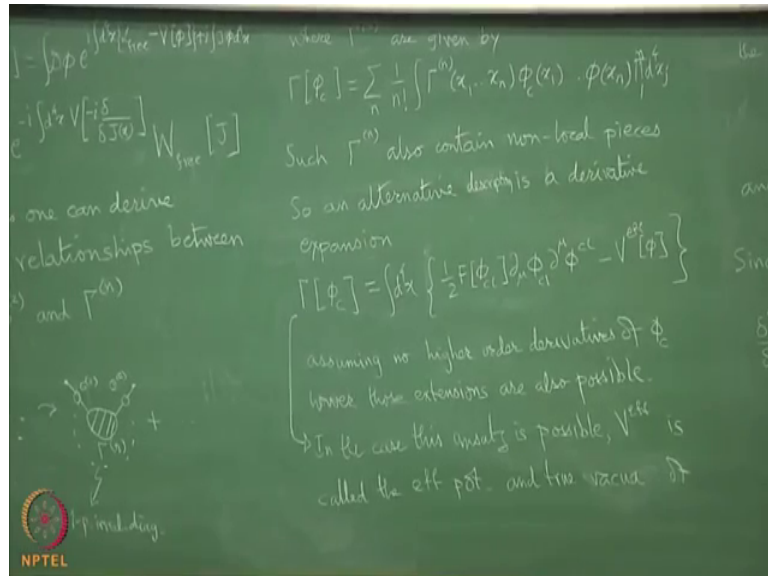 ] = ∫Dφ e^{i∫d⁴x[ℒ_free − V[φ]] + i∫Jφd⁴x}
e^{-i∫d⁴x V[-iδ/δJ(x)]} W_free [J]
one can derive
relationships between
and Γ^{(n)}
Γ^{(n)}
1-p.irred.diag.
NPTEL
where Γ^{(n)} are given by
Γ[φ_c] = ∑_n 1/n! ∫Γ^{(n)}(x₁...x_n) φ_c(x₁) .. φ(x_n) ∏_1^n d⁴x_j
Such Γ^{(n)} also contain non-local pieces
So an alternative description is a derivative
expansion
Γ[φ_c] = ∫d⁴x { 1/2 F[φ_cl] ∂_μ φ_cl ∂^μ φ^cl − V^eff[φ] }
assuming no higher order derivatives of φ_c
hower those extensions are also possible.
In the case this ansatz is possible, V^eff is
called the eff pot. and true vacua of
the
an
Sinc
δ